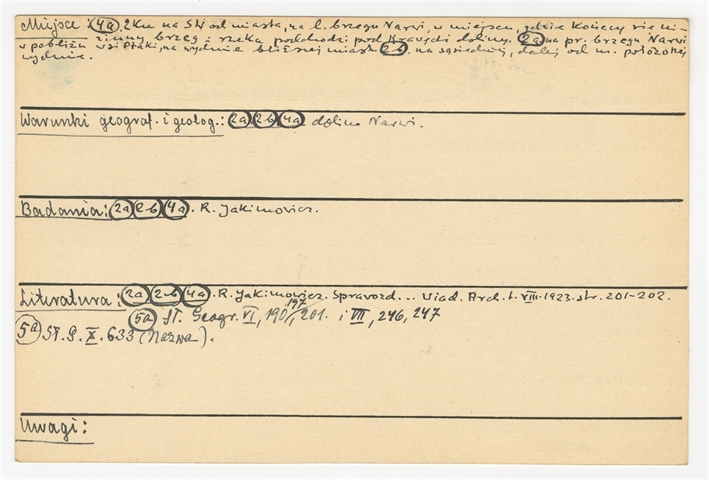 Miejsce: 4a. 2 km na SW od miasta, na l. brzegu Narwi, w miejscu, gdzie kończy się ni-
zinny brzeg i rzeka podchodzi pod krawędź doliny. 2a na pr. brzegu Narwi
w pobliżu wsi Ptaki, na wydmie bliższej miasta 2b. na sąsiedniej, dalej od m. położonej
wydmie.
Warunki geograf. i geolog.: 2a 2b 4a dolina Narwi.
Badania: 2a 2b 4a. R. Jakimowicz.
Literatura: 2a 2b 4a. R. Jakimowicz. Sprawozd... Wiad. Arch. t. VIII. 1923. str. 201-202.
5a Sł. Geogr. VI, 190/, 201. i VII, 246, 247
5a Sł. G. X. 633 (Nazwa).
Uwagi: